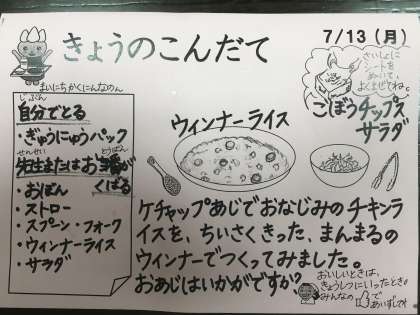 きょうのこんだて
7/13（月）
まいにちかくにんなのん
じぶん
自分でとる
・ぎゅうにゅうパック
せんせい とうばん
先生またはお当番が
くばる
・おぼん
・ストロー
・スプーン・フォーク
・ウィンナーライス
・サラダ
ウィンナーライス
さいしょに
シートを
ごぼうチップス
サラダ
ケチャップあじでおなじみのチキンラ
イスを、ちいさくきった、まんまるの
ウィンナーでつくってみました。
おあじはいかがですか？
おいしいときは、
きょうしつにいったとき、
みんなの
であいずして！